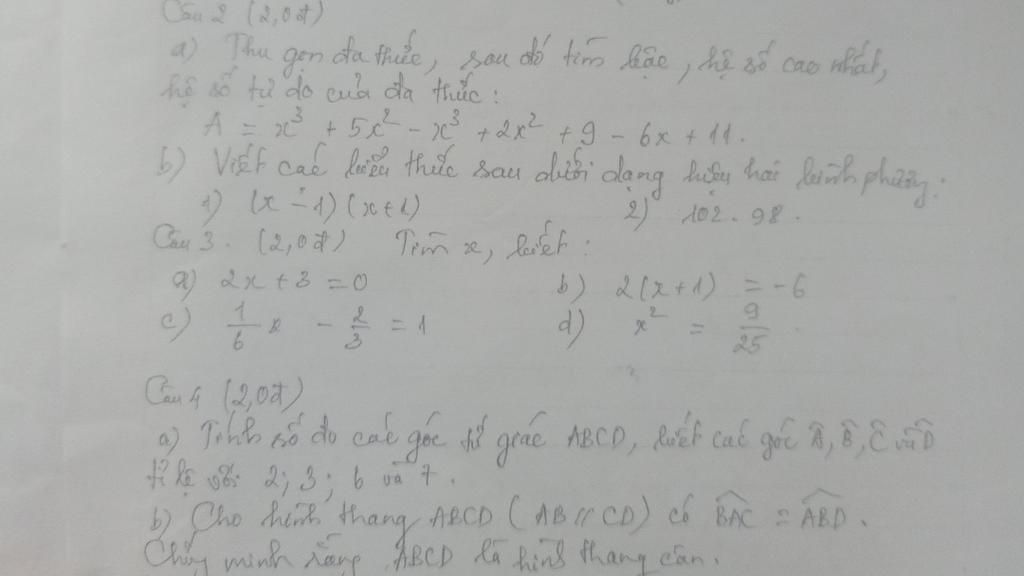 Câu 2 (2,0đ)
a) Thu gọn đa thức, sau đó tìm bậc, hệ số cao nhất,
hệ số tự do của đa thức:
A = x³ + 5x² - x³ + 2x² + 9 - 6x + 11.
b) Viết các biểu thức sau dưới dạng hiệu hai bình phương:
1) (x - 1)(x + 1) 2) 102 . 98.
Câu 3. (2,0đ) Tìm x, biết:
a) 2x + 3 = 0 b) 2(x + 1) = -6
c) 1/6 x - 2/3 = 1 d) x² = 9/25
Câu 4 (2,0đ)
a) Tính số đo các góc tứ giác ABCD, biết các góc Â, B̂, Ĉ và D̂
tỉ lệ với 2; 3; 6 và 7.
b) Cho hình thang ABCD (AB // CD) có BAC = ABD.
Chứng minh rằng ABCD là hình thang cân.